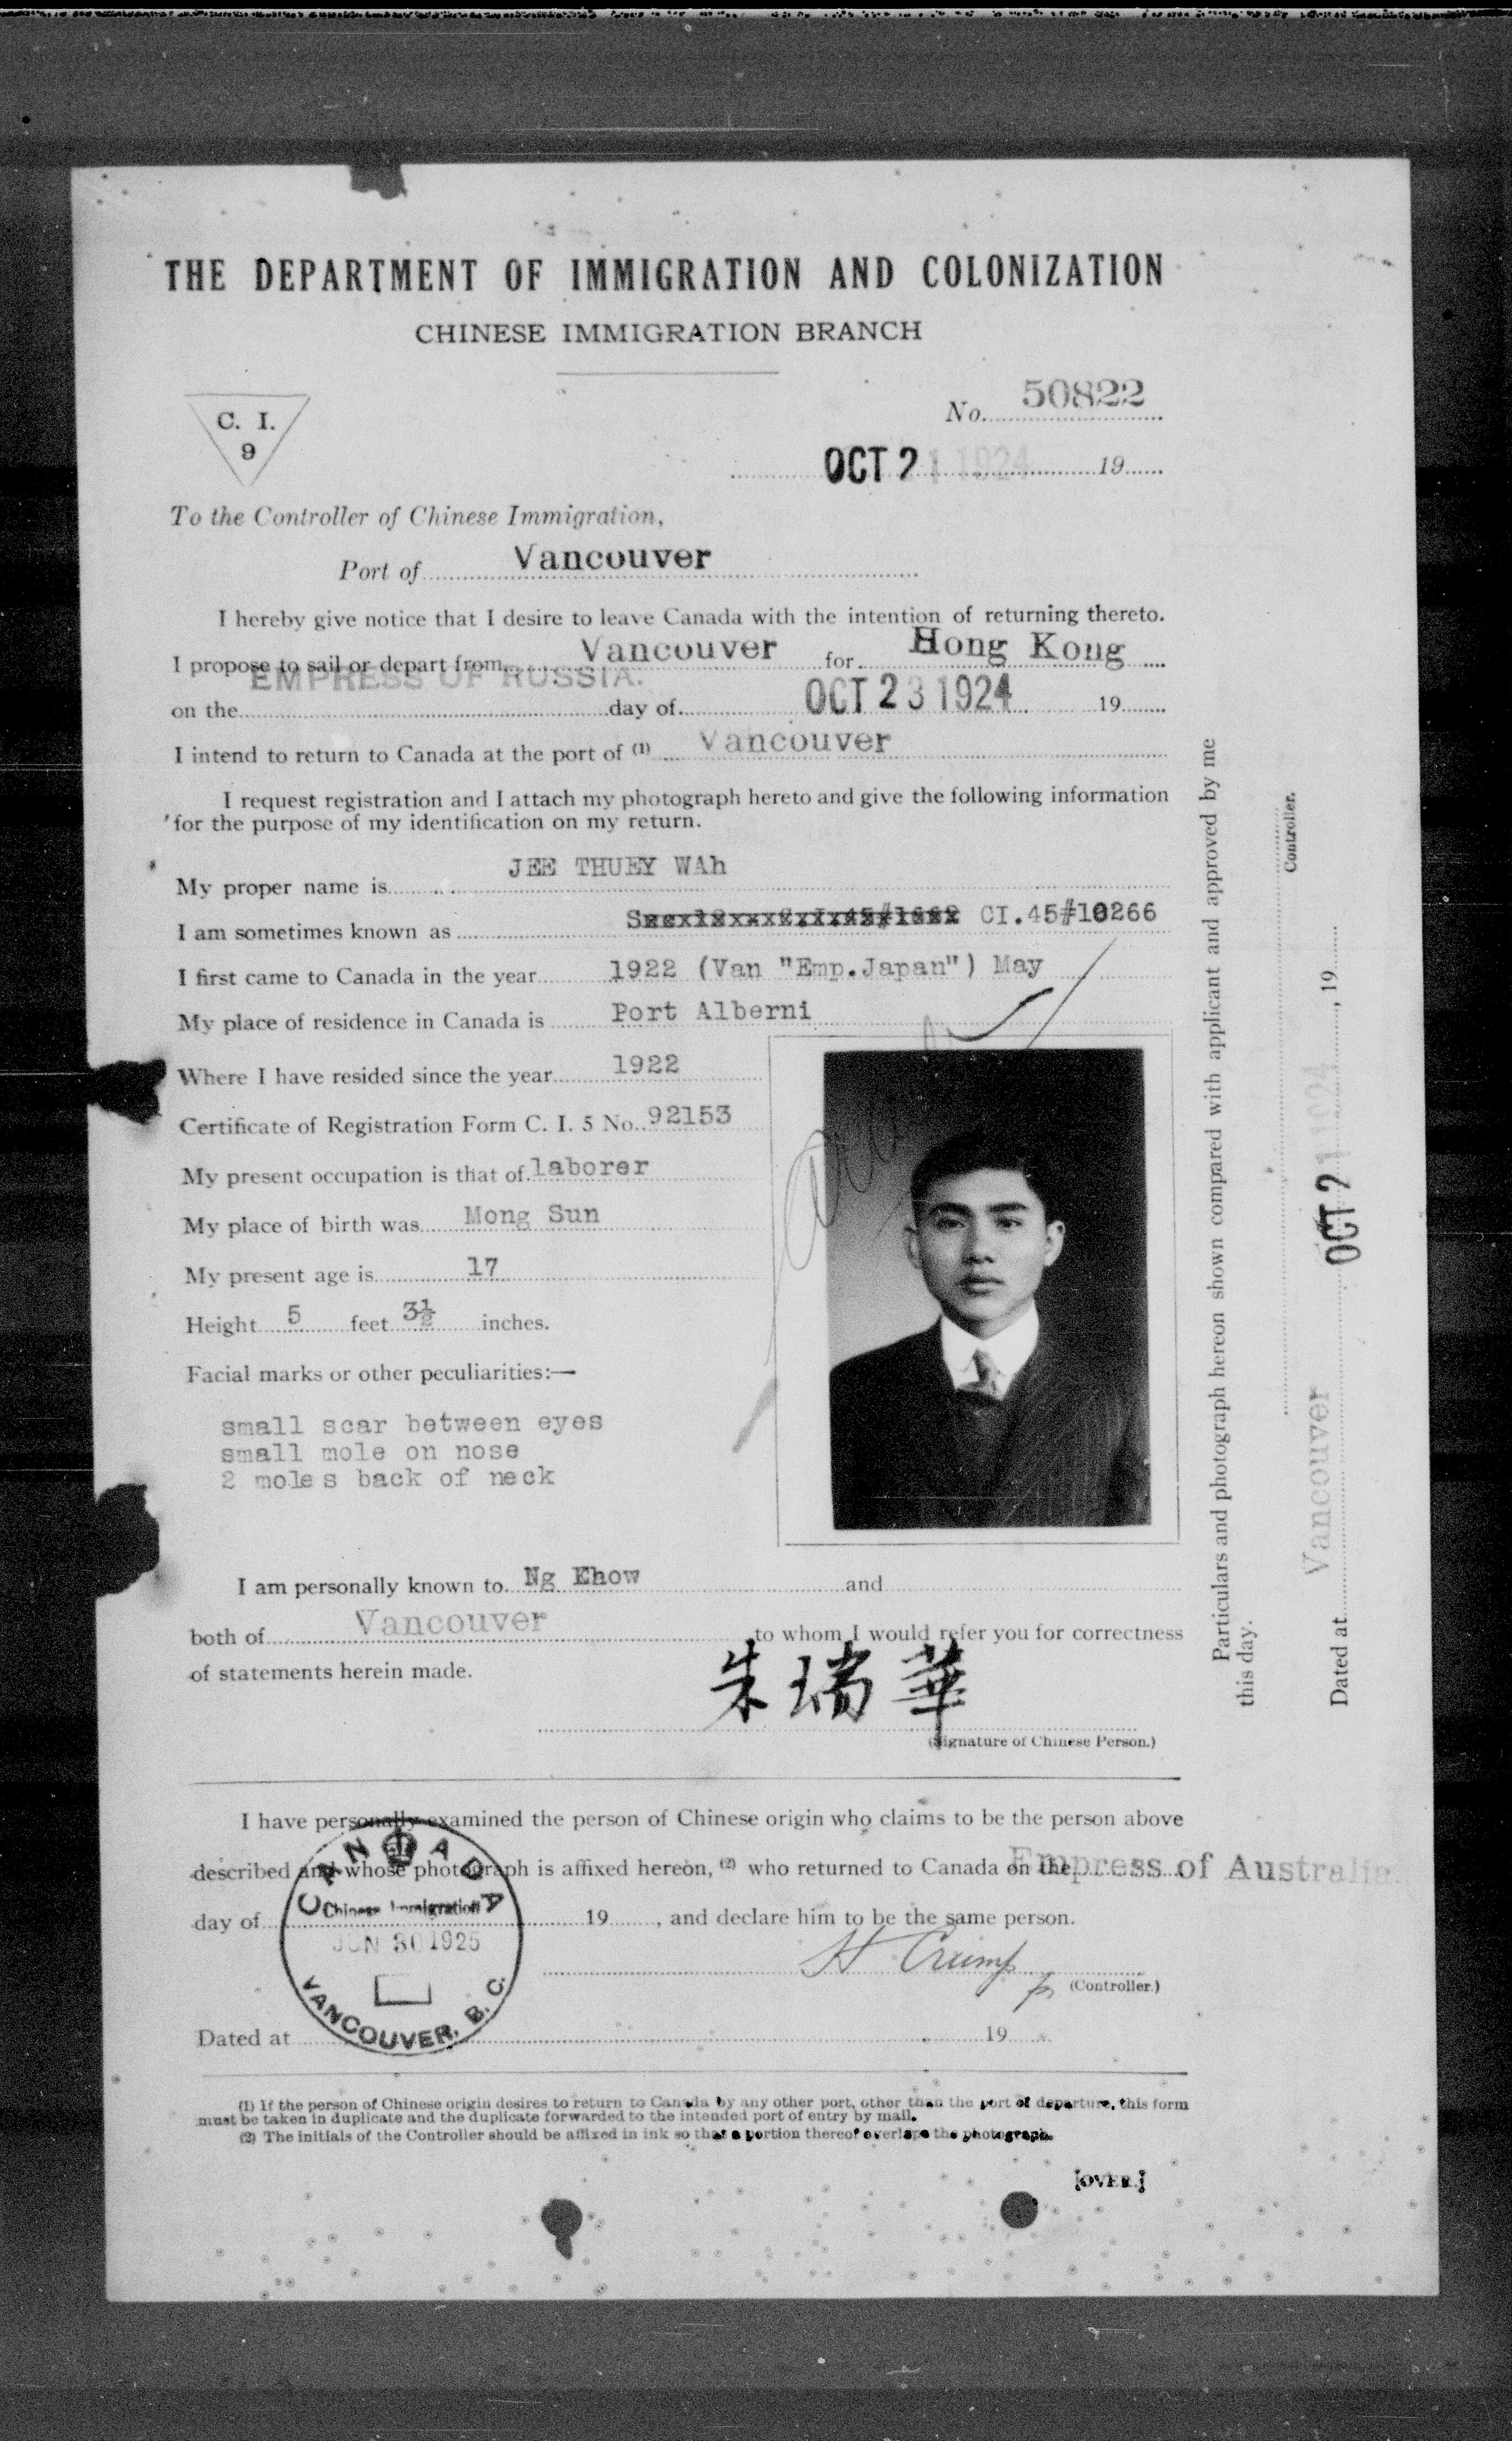 THE DEPARTMENT OF IMMIGRATION AND COLONIZATION
CHINESE IMMIGRATION BRANCH
C. I.
9
No. 50822
OCT 21 1924 19
To the Controller of Chinese Immigration,
Port of Vancouver
I hereby give notice that I desire to leave Canada with the intention of returning thereto.
I propose to sail or depart from Vancouver for Hong Kong
EMPRESS OF RUSSIA.
on the day of OCT 23 1924 19
I intend to return to Canada at the port of (1) Vancouver
I request registration and I attach my photograph hereto and give the following information
for the purpose of my identification on my return.
My proper name is JEE THUEY WAh
I am sometimes known as CI.45#10266
I first came to Canada in the year 1922 (Van "Emp.Japan") May
My place of residence in Canada is Port Alberni
Where I have resided since the year 1922
Certificate of Registration Form C. I. 5 No. 92153
My present occupation is that of laborer
My place of birth was Mong Sun
My present age is 17
Height 5 feet 3½ inches.
Facial marks or other peculiarities:—
small scar between eyes
small mole on nose
2 moles back of neck
I am personally known to Ng Ehow and
both of Vancouver to whom I would refer you for correctness
of statements herein made.
朱瑞華
(Signature of Chinese Person.)
I have personally examined the person of Chinese origin who claims to be the person above
described and whose photograph is affixed hereon, (2) who returned to Canada on the Empress of Australia
day of 19 , and declare him to be the same person.
CANADA
Chinese Immigration
JUN 30 1925
VANCOUVER, B. C.
H Crump
(Controller.)
Dated at 19
(1) If the person of Chinese origin desires to return to Canada by any other port, other than the port of departure, this form
must be taken in duplicate and the duplicate forwarded to the intended port of entry by mail.
(2) The initials of the Controller should be affixed in ink so that a portion thereof overlaps the photograph.
[OVER.]
Particulars and photograph hereon shown compared with applicant and approved by me
this day.
Controller.
Dated at Vancouver OCT 21 1924 , 19